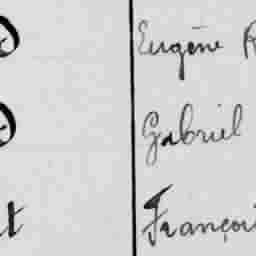 Eugène R
Gabriel
Françoi